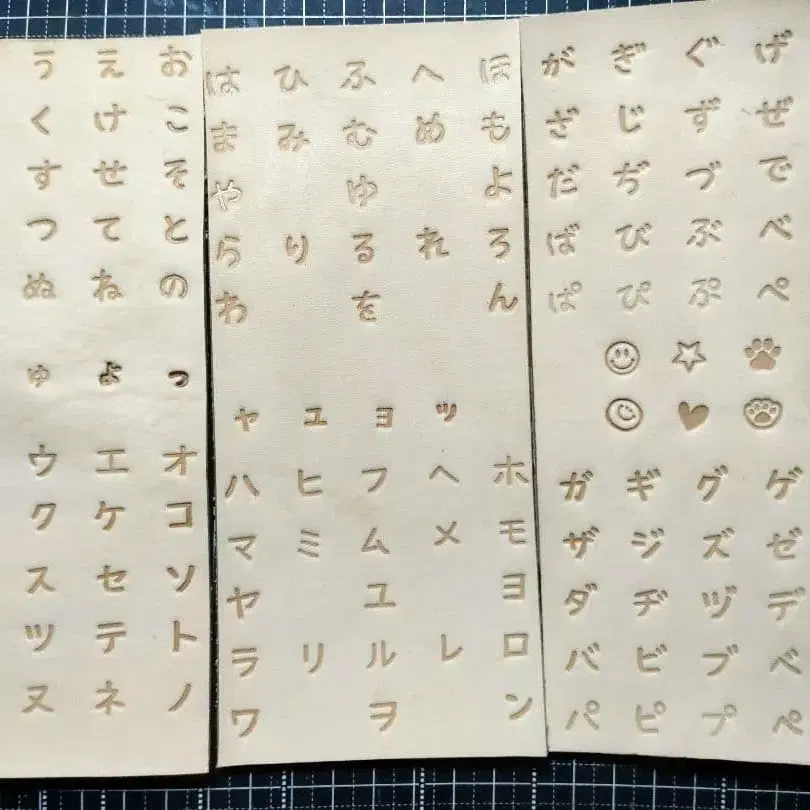 う え お
く け こ
す せ そ
つ て と
ぬ ね の
ゅ ょ っ
ウ エ オ
ク ケ コ
ス セ ソ
ツ テ ト
ヌ ネ ノ
は ひ ふ へ ほ
ま み む め も
や ゆ よ
ら り る れ ろ
わ を ん
ャ ュ ョ ッ
ハ ヒ フ ヘ ホ
マ ミ ム メ モ
ヤ ユ ヨ
ラ リ ル レ ロ
ワ ヲ ン
が ぎ ぐ げ
ざ じ ず ぜ
だ ぢ づ で
ば び ぶ べ
ぱ ぴ ぷ ぺ
ガ ギ グ ゲ
ザ ジ ズ ゼ
ダ ヂ ヅ デ
バ ビ ブ ベ
パ ピ プ ペ